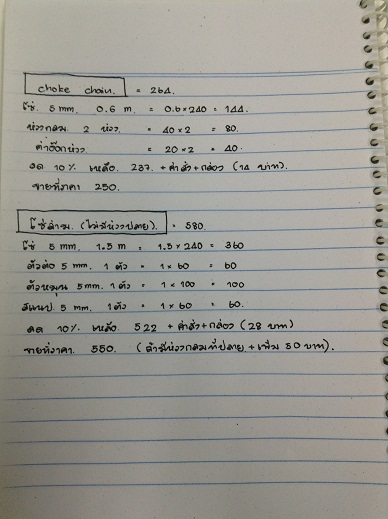 choke chain. = 264.
โซ่. 5 mm. 0.6 m. = 0.6×240 = 144.
ห่วงกลม. 2 ห่วง. = 40×2 = 80.
ค่าอ๊อกห่วง. = 20×2 = 40.
ลด 10% เหลือ. 237. + ค่าส่ง+กล่อง (14 บาท).
ขายที่ราคา 250.
โซ่ล่าม. (ไม่มีห่วงปลาย). = 580.
โซ่ 5 mm. 1.5 m = 1.5×240 = 360
ตัวต่อ 5 mm. 1 ตัว = 1×60 = 60
ตัวหมุน 5 mm. 1 ตัว = 1×100 = 100
สแนป 5 mm. 1 ตัว = 1×60 = 60.
ลด 10% เหลือ. 522 + ค่าส่ง+กล่อง (28 บาท)
ขายที่ราคา. 550. (ถ้ามีห่วงกลมที่ปลาย + เพิ่ม 50 บาท).